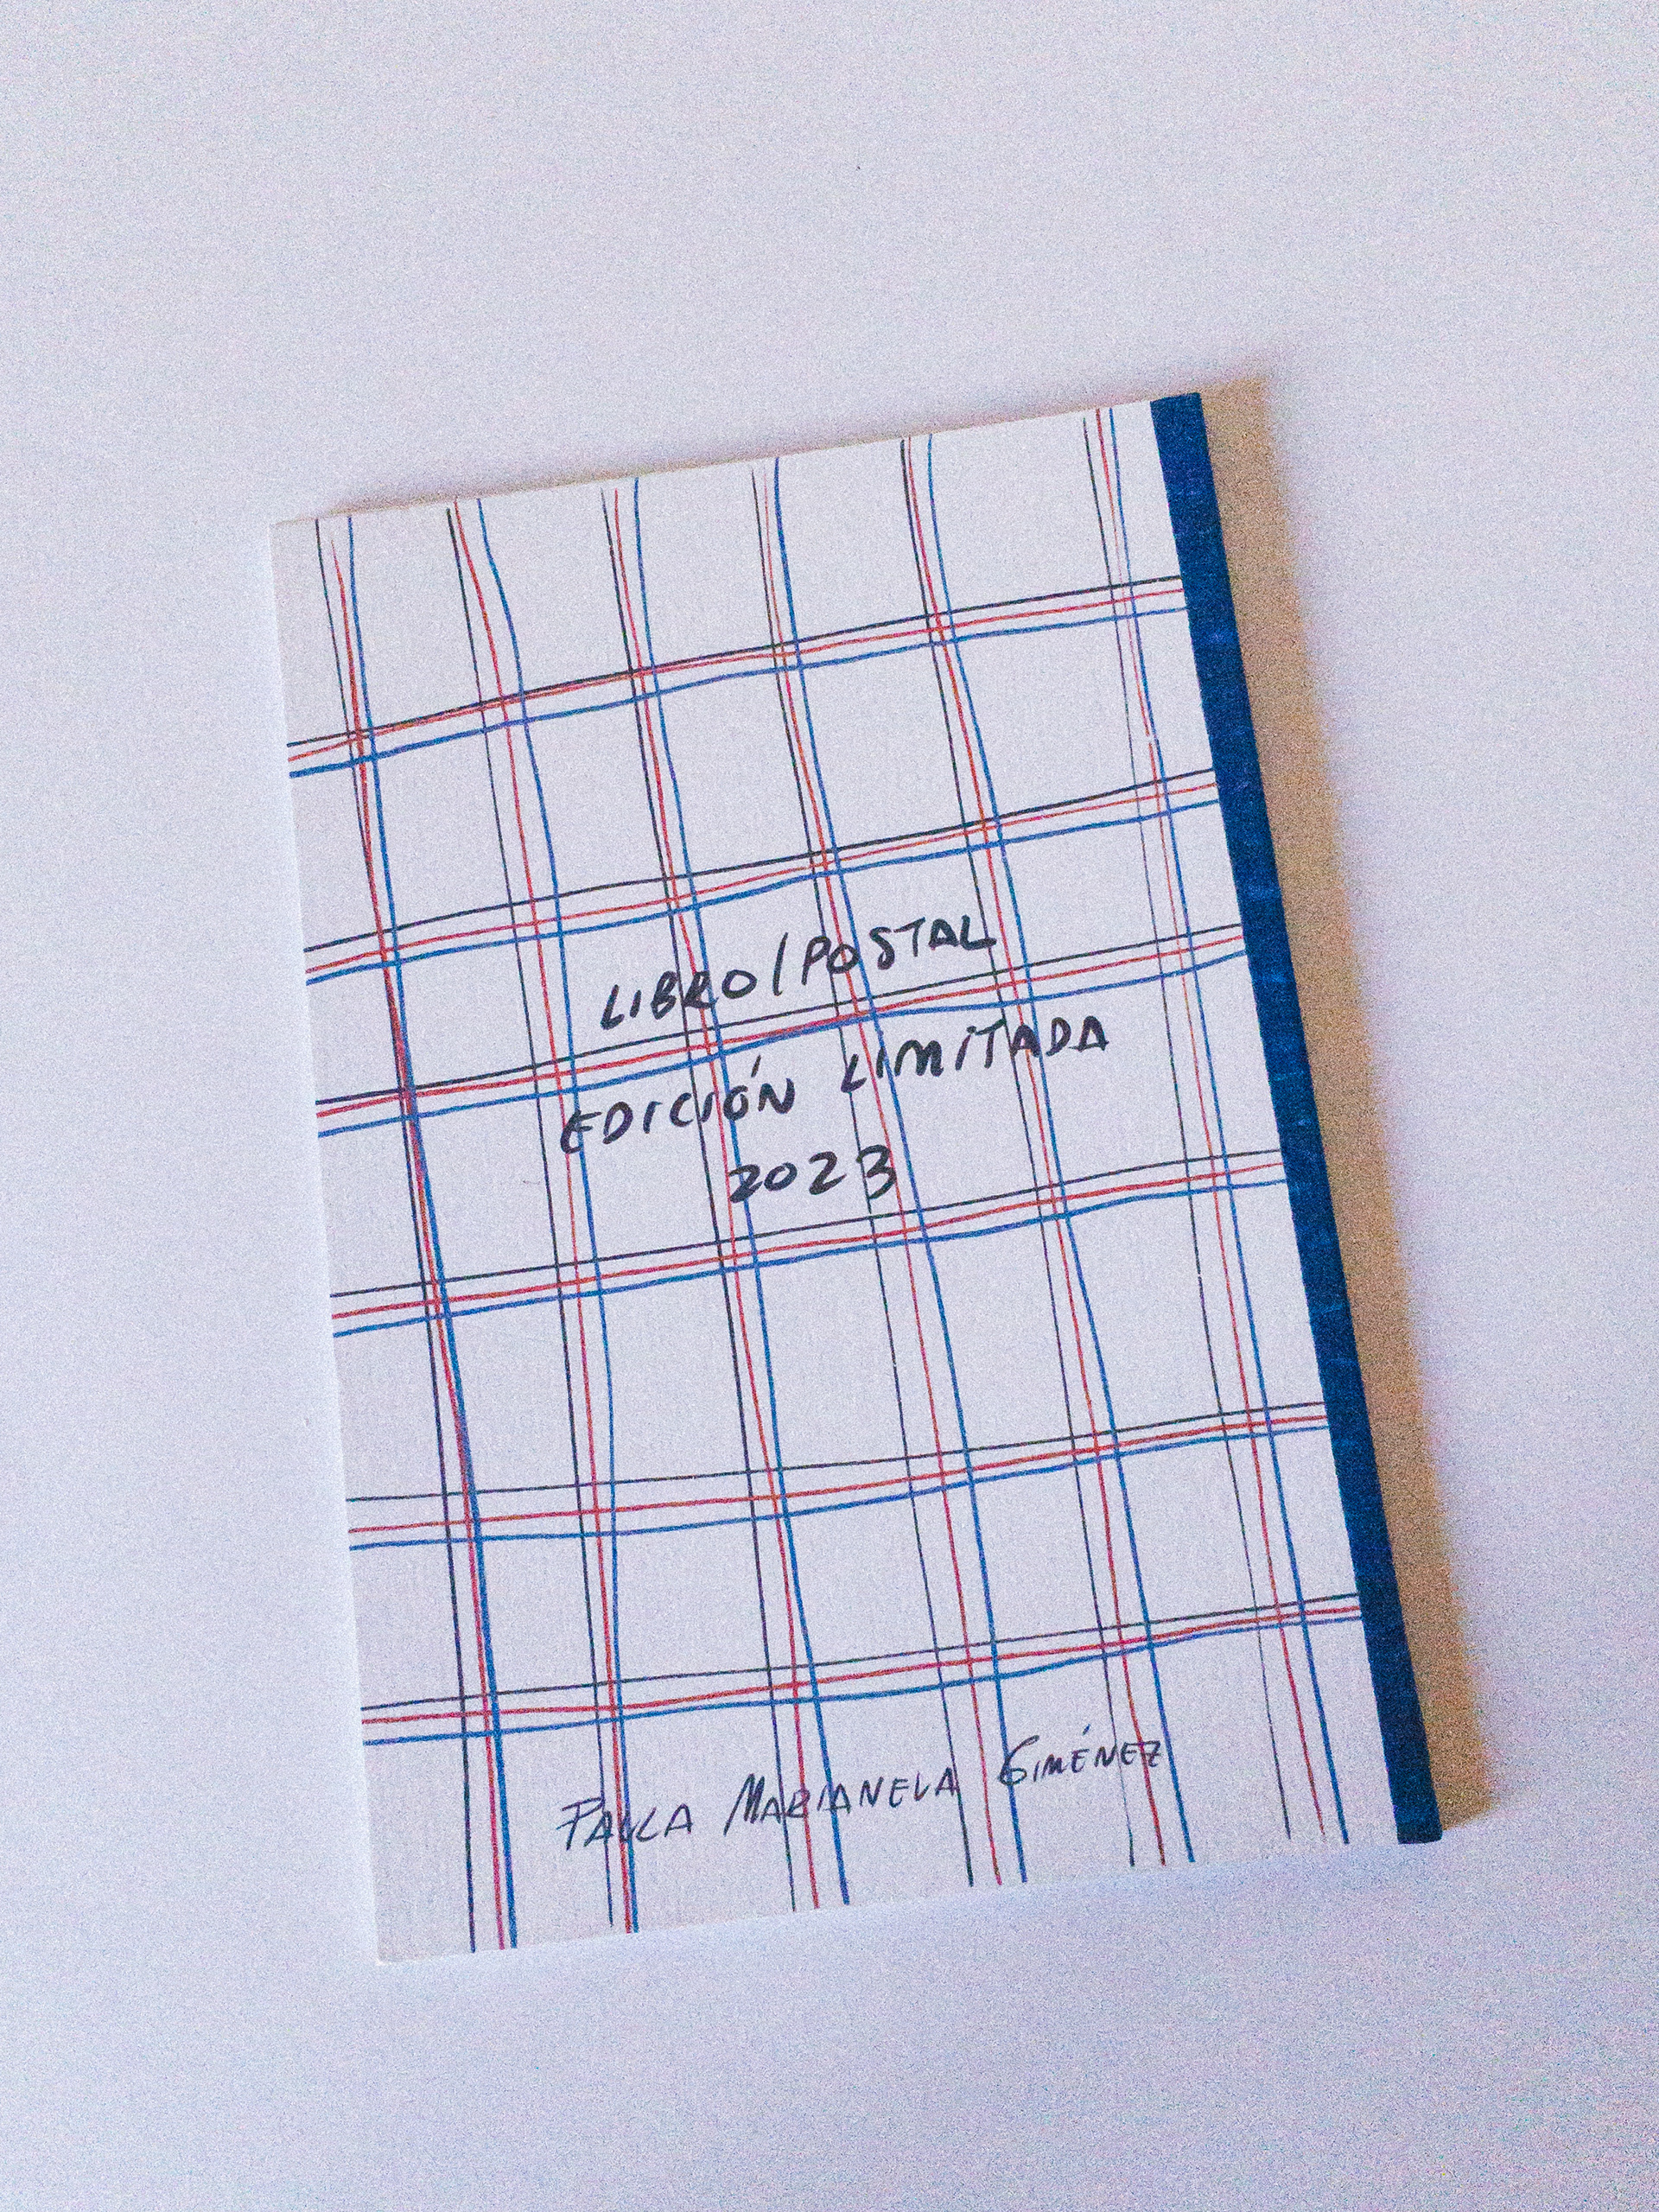 LIBRO/POSTAL
EDICIÓN LIMITADA
2023
PAULA MARIANELA GIMÉNEZ